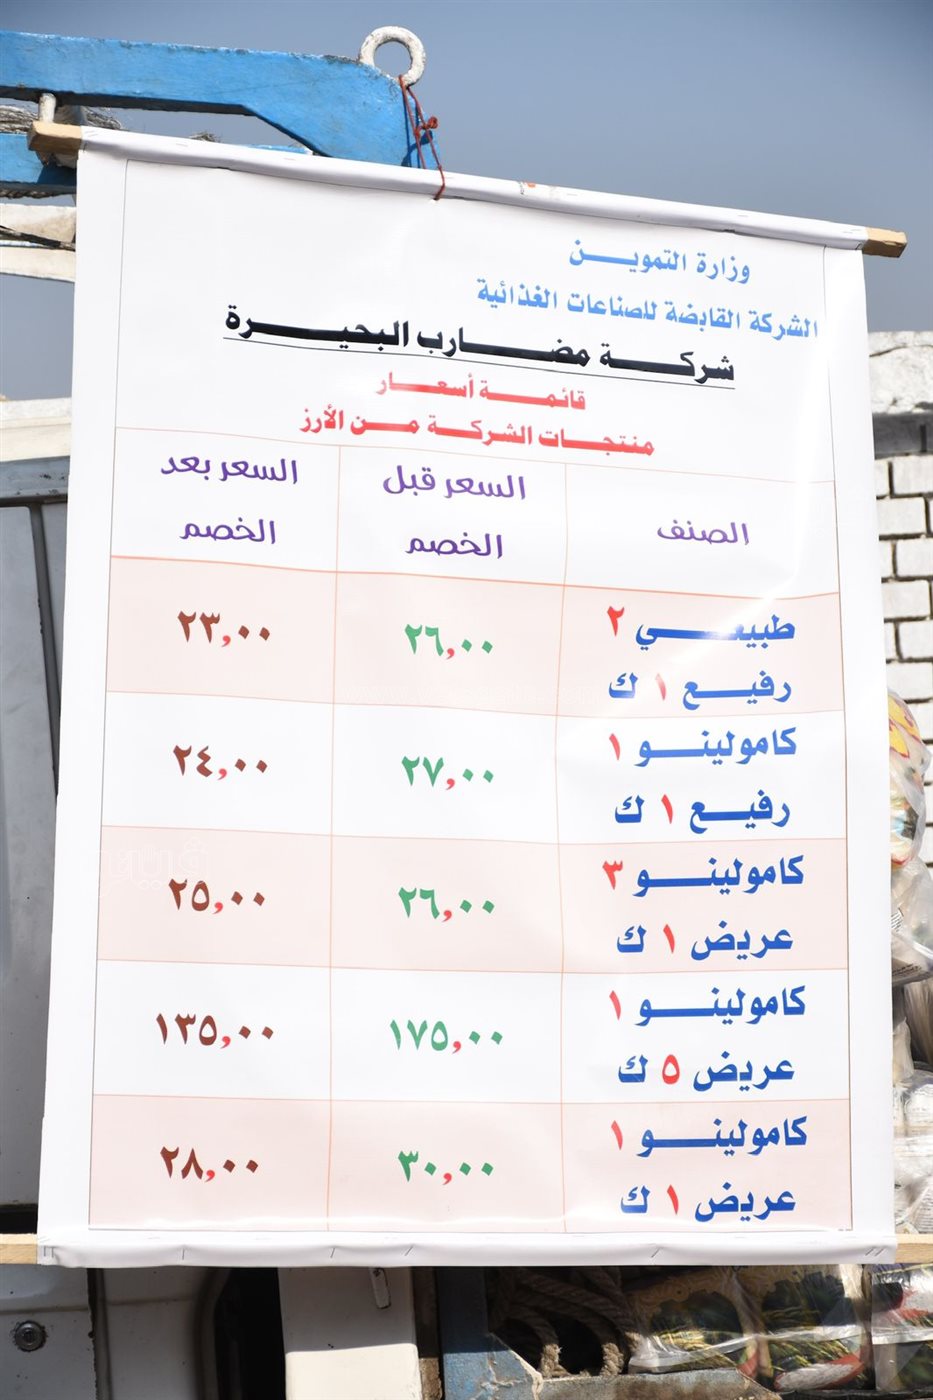 وزارة التموين
الشركة القابضة للصناعات الغذائية
شركة مضارب البحيرة
قائمة أسعار
منتجات الشركة من الأرز
الصنف السعر قبل السعر بعد
الخصم الخصم
طبيعي ٢ ٢٦,٠٠ ٢٣,٠٠
رفيع ١ ك
كامولينو ١ ٢٧,٠٠ ٢٤,٠٠
رفيع ١ ك
كامولينو ٣ ٢٦,٠٠ ٢٥,٠٠
عريض ١ ك
كامولينو ١ ١٧٥,٠٠ ١٣٥,٠٠
عريض ٥ ك
كامولينو ١ ٣٠,٠٠ ٢٨,٠٠
عريض ١ ك